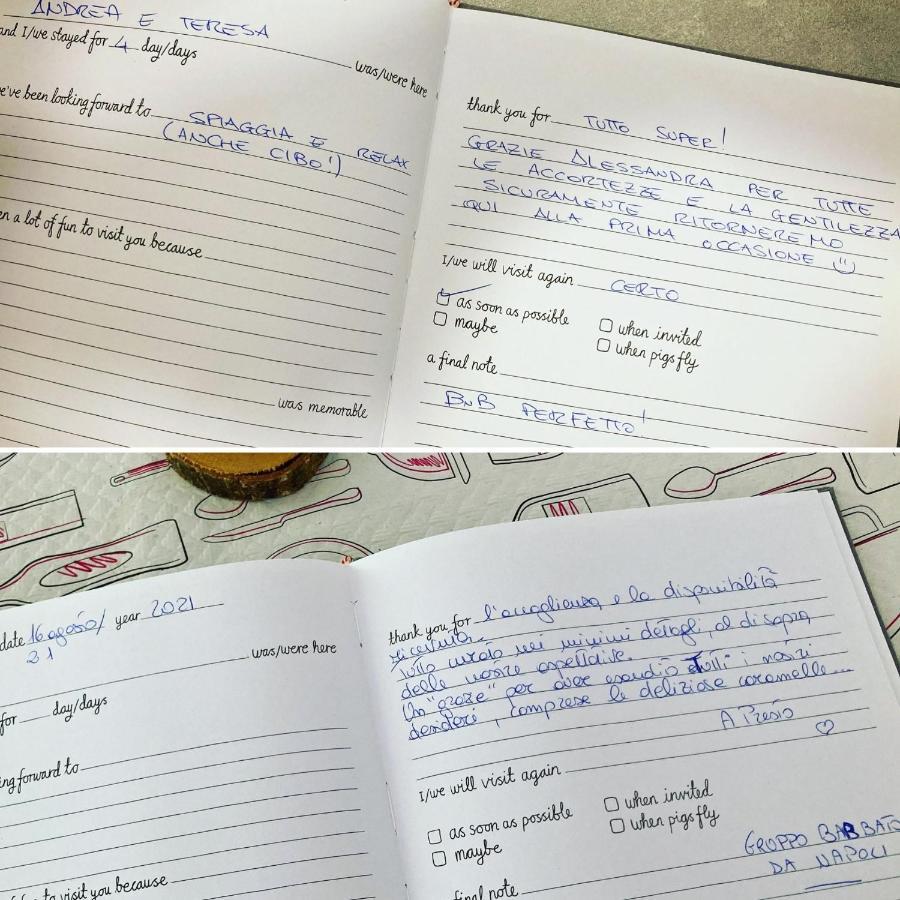 ANDREA E TERESA
and I/we stayed for 4 day/days
was/were here
e've been looking forward to SPIAGGIA E RELAX
(ANCHE CIBO!)
en a lot of fun to visit you because
was memorable
thank you for TUTTO SUPER!
GRAZIE ALESSANDRA PER TUTTE
LE ACCORTEZZE E LA GENTILEZZA
SICURAMENTE RITORNEREMO
QUI ALLA PRIMA OCCASIONE
I/we will visit again CERTO
as soon as possible
maybe
when invited
when pigs fly
a final note
BnB PERFETTO!
date 16 agosto/ year 2021
21
was/were here
for day/days
ing forward to
to visit you because
thank you for l'accoglienza e la disponibilità
ricevuta.
Tutto curato nei minimi dettagli, al di sopra
delle nostre aspettative.
Un "grazie" per aver esaudito tutti i nostri
desideri, comprese le deliziose caramelle...
A Presto
I/we will visit again
as soon as possible
maybe
when invited
when pigs fly
final note
GROPPO BABBATO
DA NAPOLI